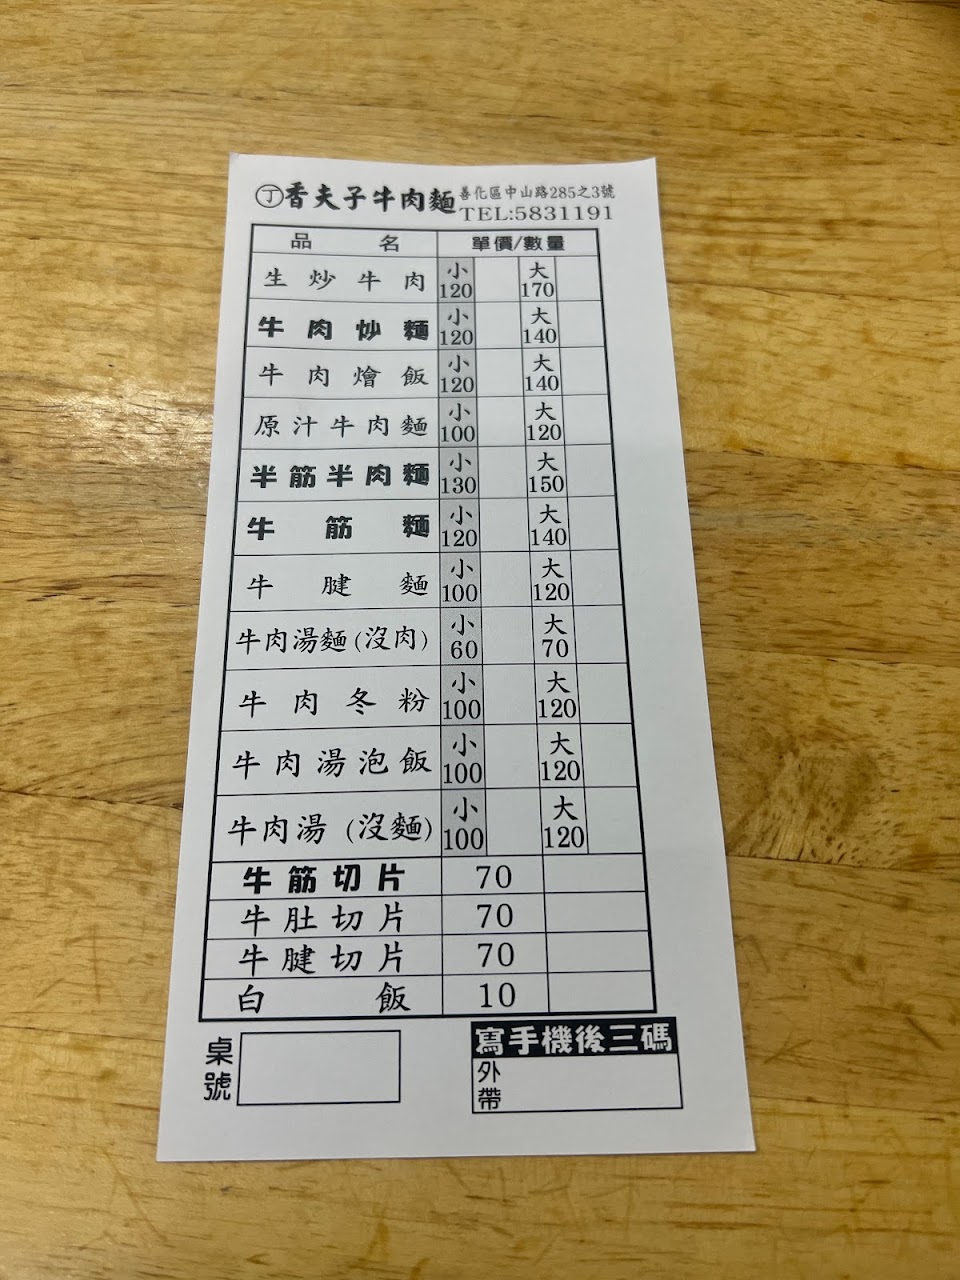 丁香夫子牛肉麵 善化區中山路285之3號
TEL:5831191
品名 單價/數量
生炒牛肉 小120 大170
牛肉炒麵 小120 大140
牛肉燴飯 小120 大140
原汁牛肉麵 小100 大120
半筋半肉麵 小130 大150
牛筋麵 小120 大140
牛腱麵 小100 大120
牛肉湯麵(沒肉) 小60 大70
牛肉冬粉 小100 大120
牛肉湯泡飯 小100 大120
牛肉湯(沒麵) 小100 大120
牛筋切片 70
牛肚切片 70
牛腱切片 70
白飯 10
桌號
寫手機後三碼
外帶